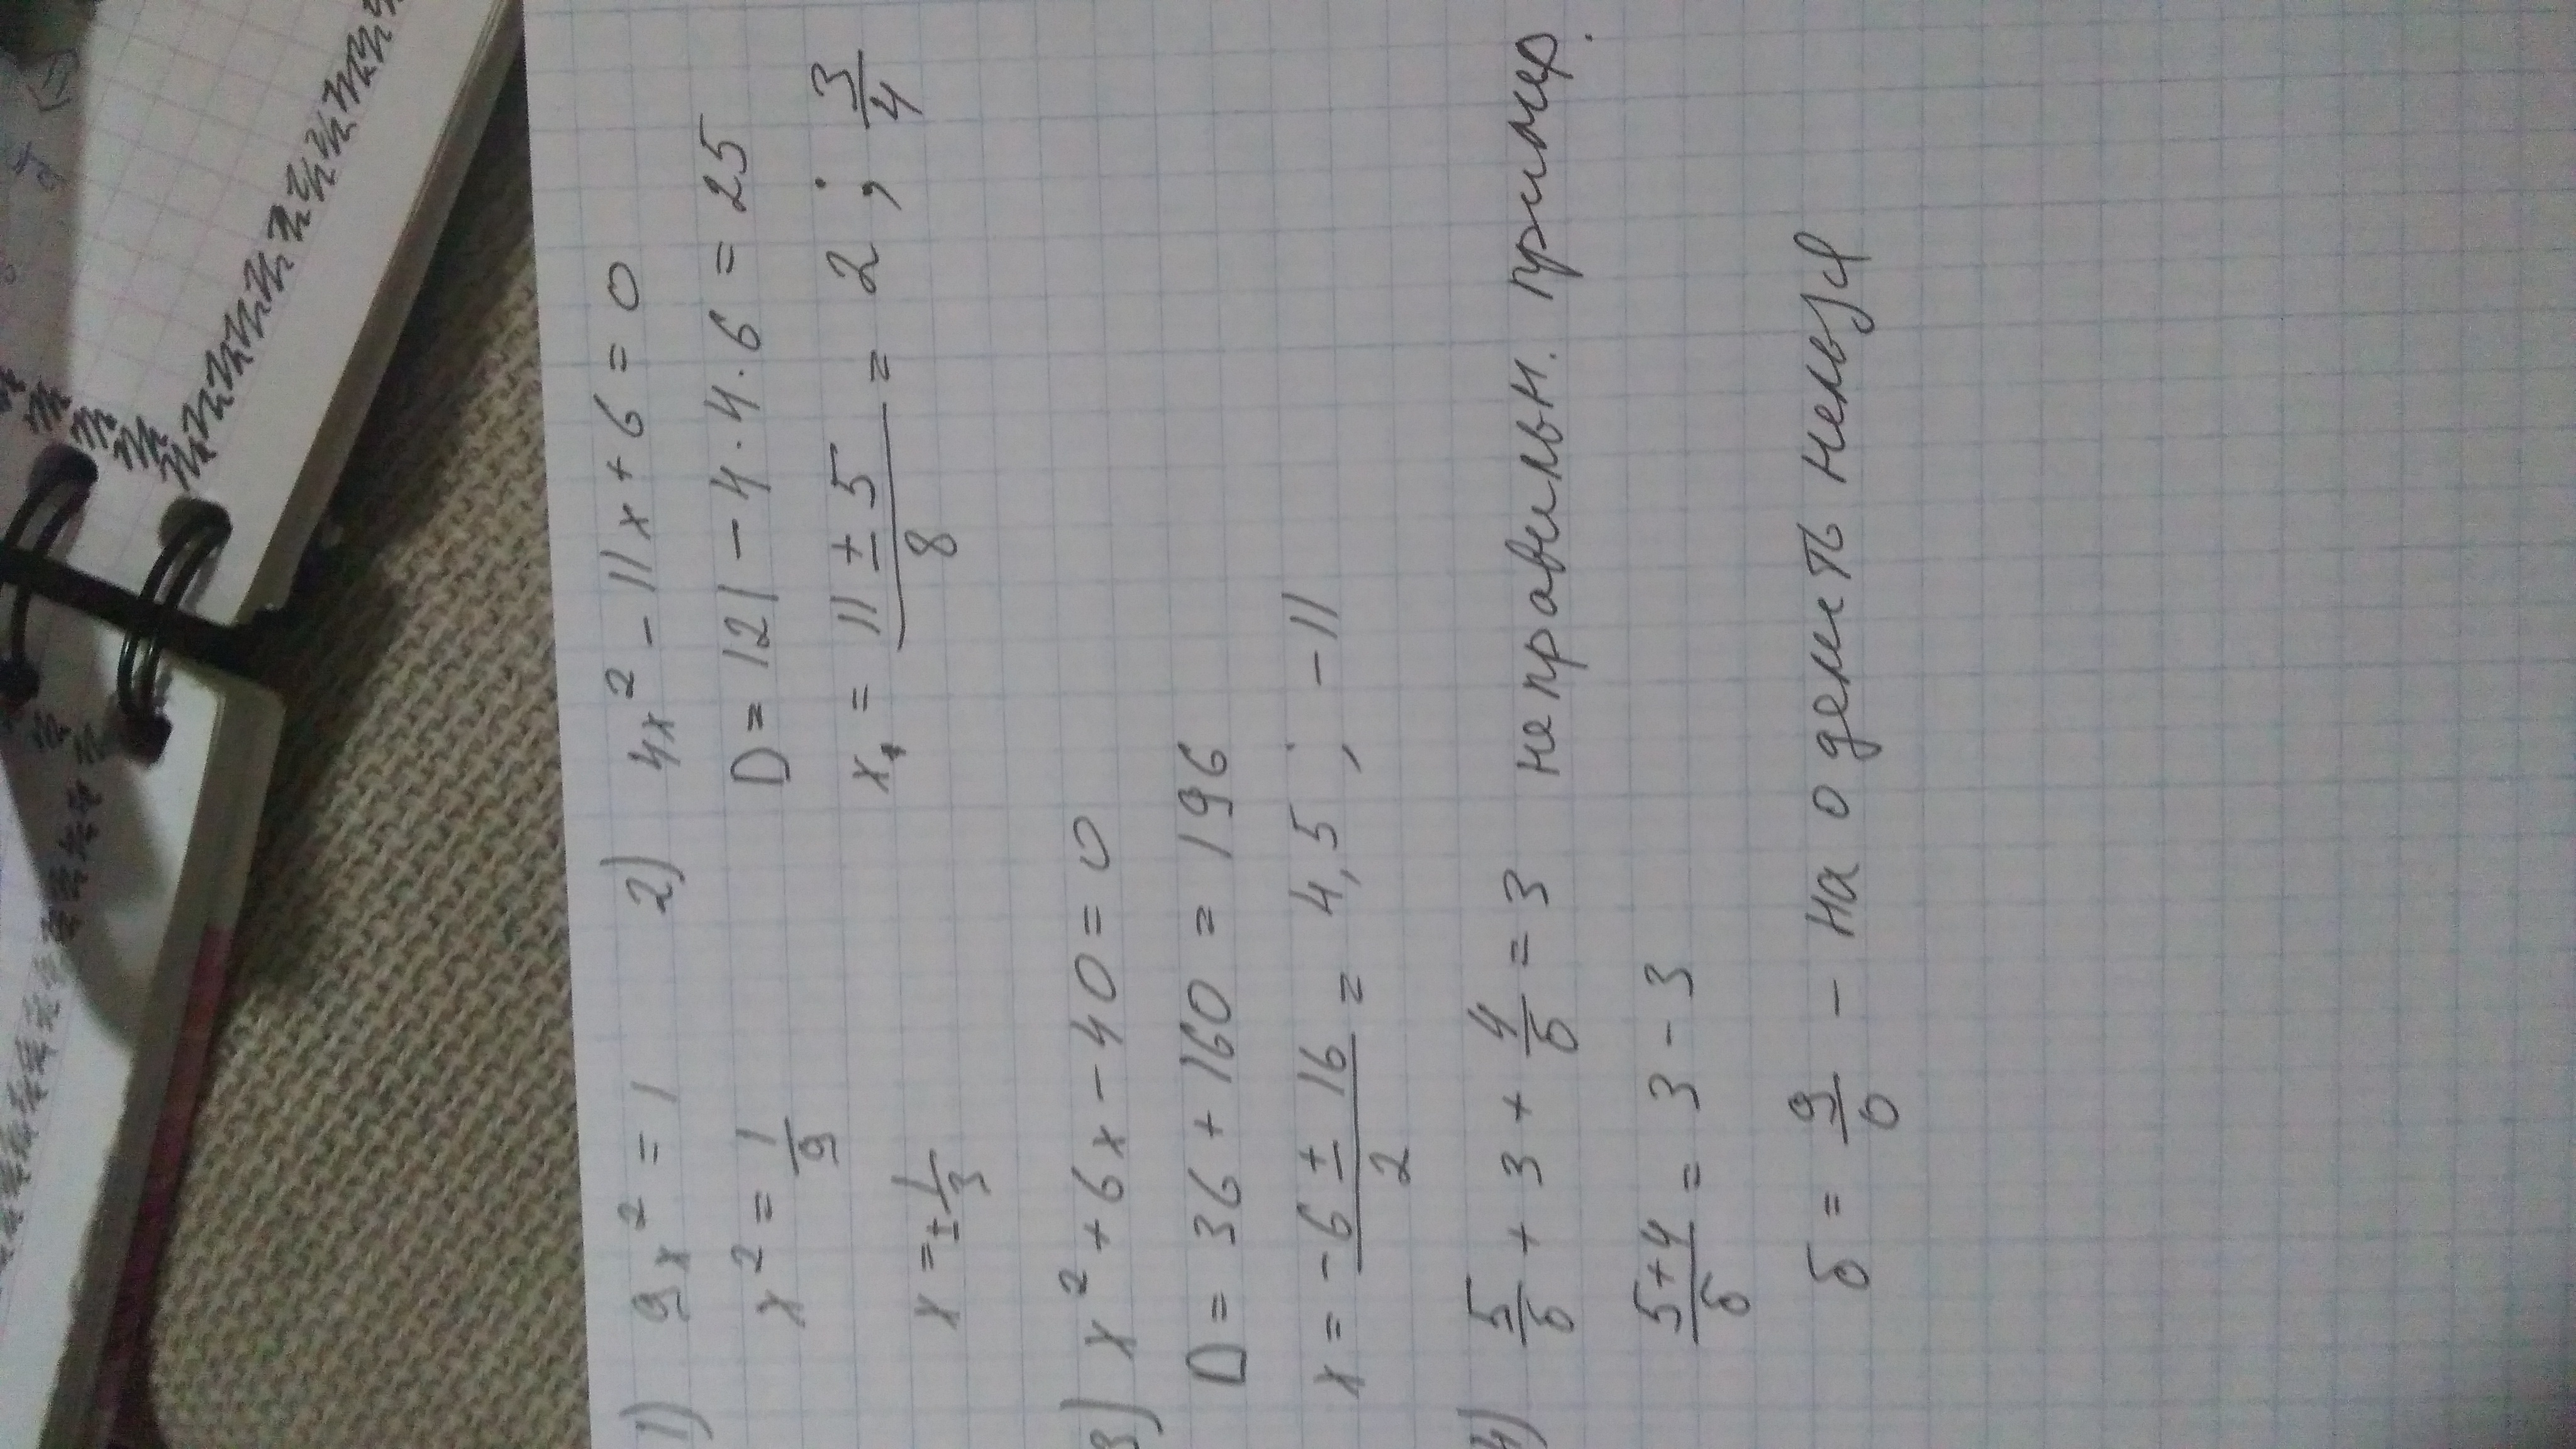 1) 9x² = 1
x² = 1/9
x = ± 1/3
2) 4x² - 11x + 6 = 0
D = 121 - 4 · 4 · 6 = 25
x₁ = (11 ± 5)/8 = 2 ; 3/4
3) x² + 6x - 40 = 0
D = 36 + 160 = 196
x = (-6 ± 16)/2 = 4,5 ; -11
4) 5/б + 3 + 4/б = 3 неправильн. пример.
(5+4)/б = 3 - 3
б = 9/0 - на 0 делить нельзя